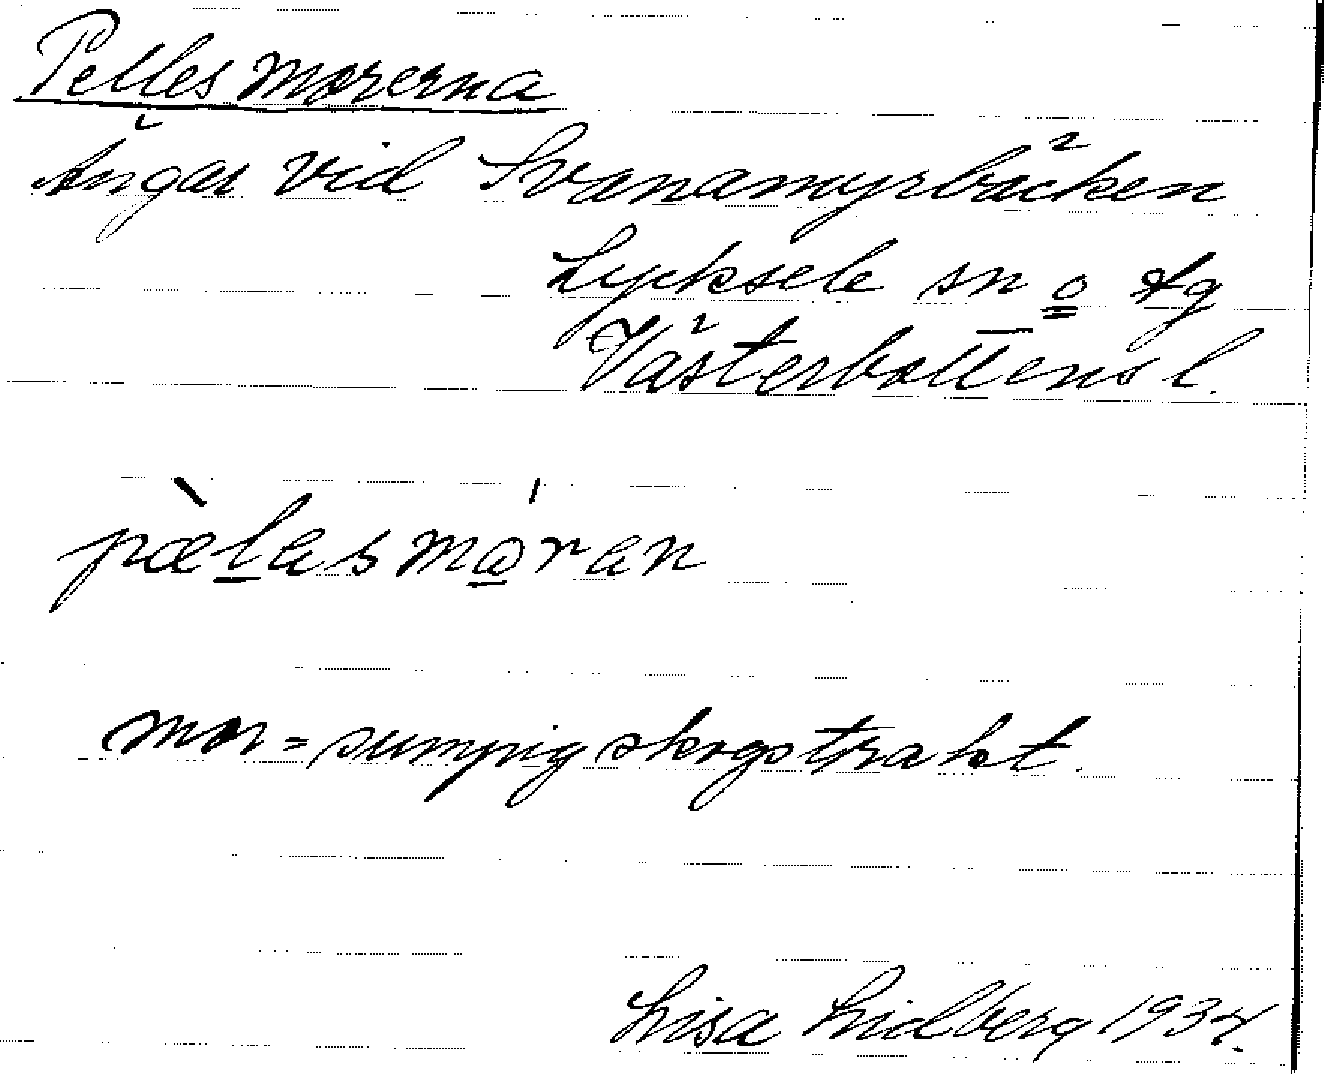 Pellesmorerna
Ängar vid Svanamyrbäcken
Lycksele sn o tg
Västerbottens l.
pæ̀lasmá̱ran
mor = sumpig skogstrakt.
Lisa Lidberg 1934.